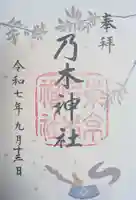 奉拝
乃木神社
令和七年九月十三日